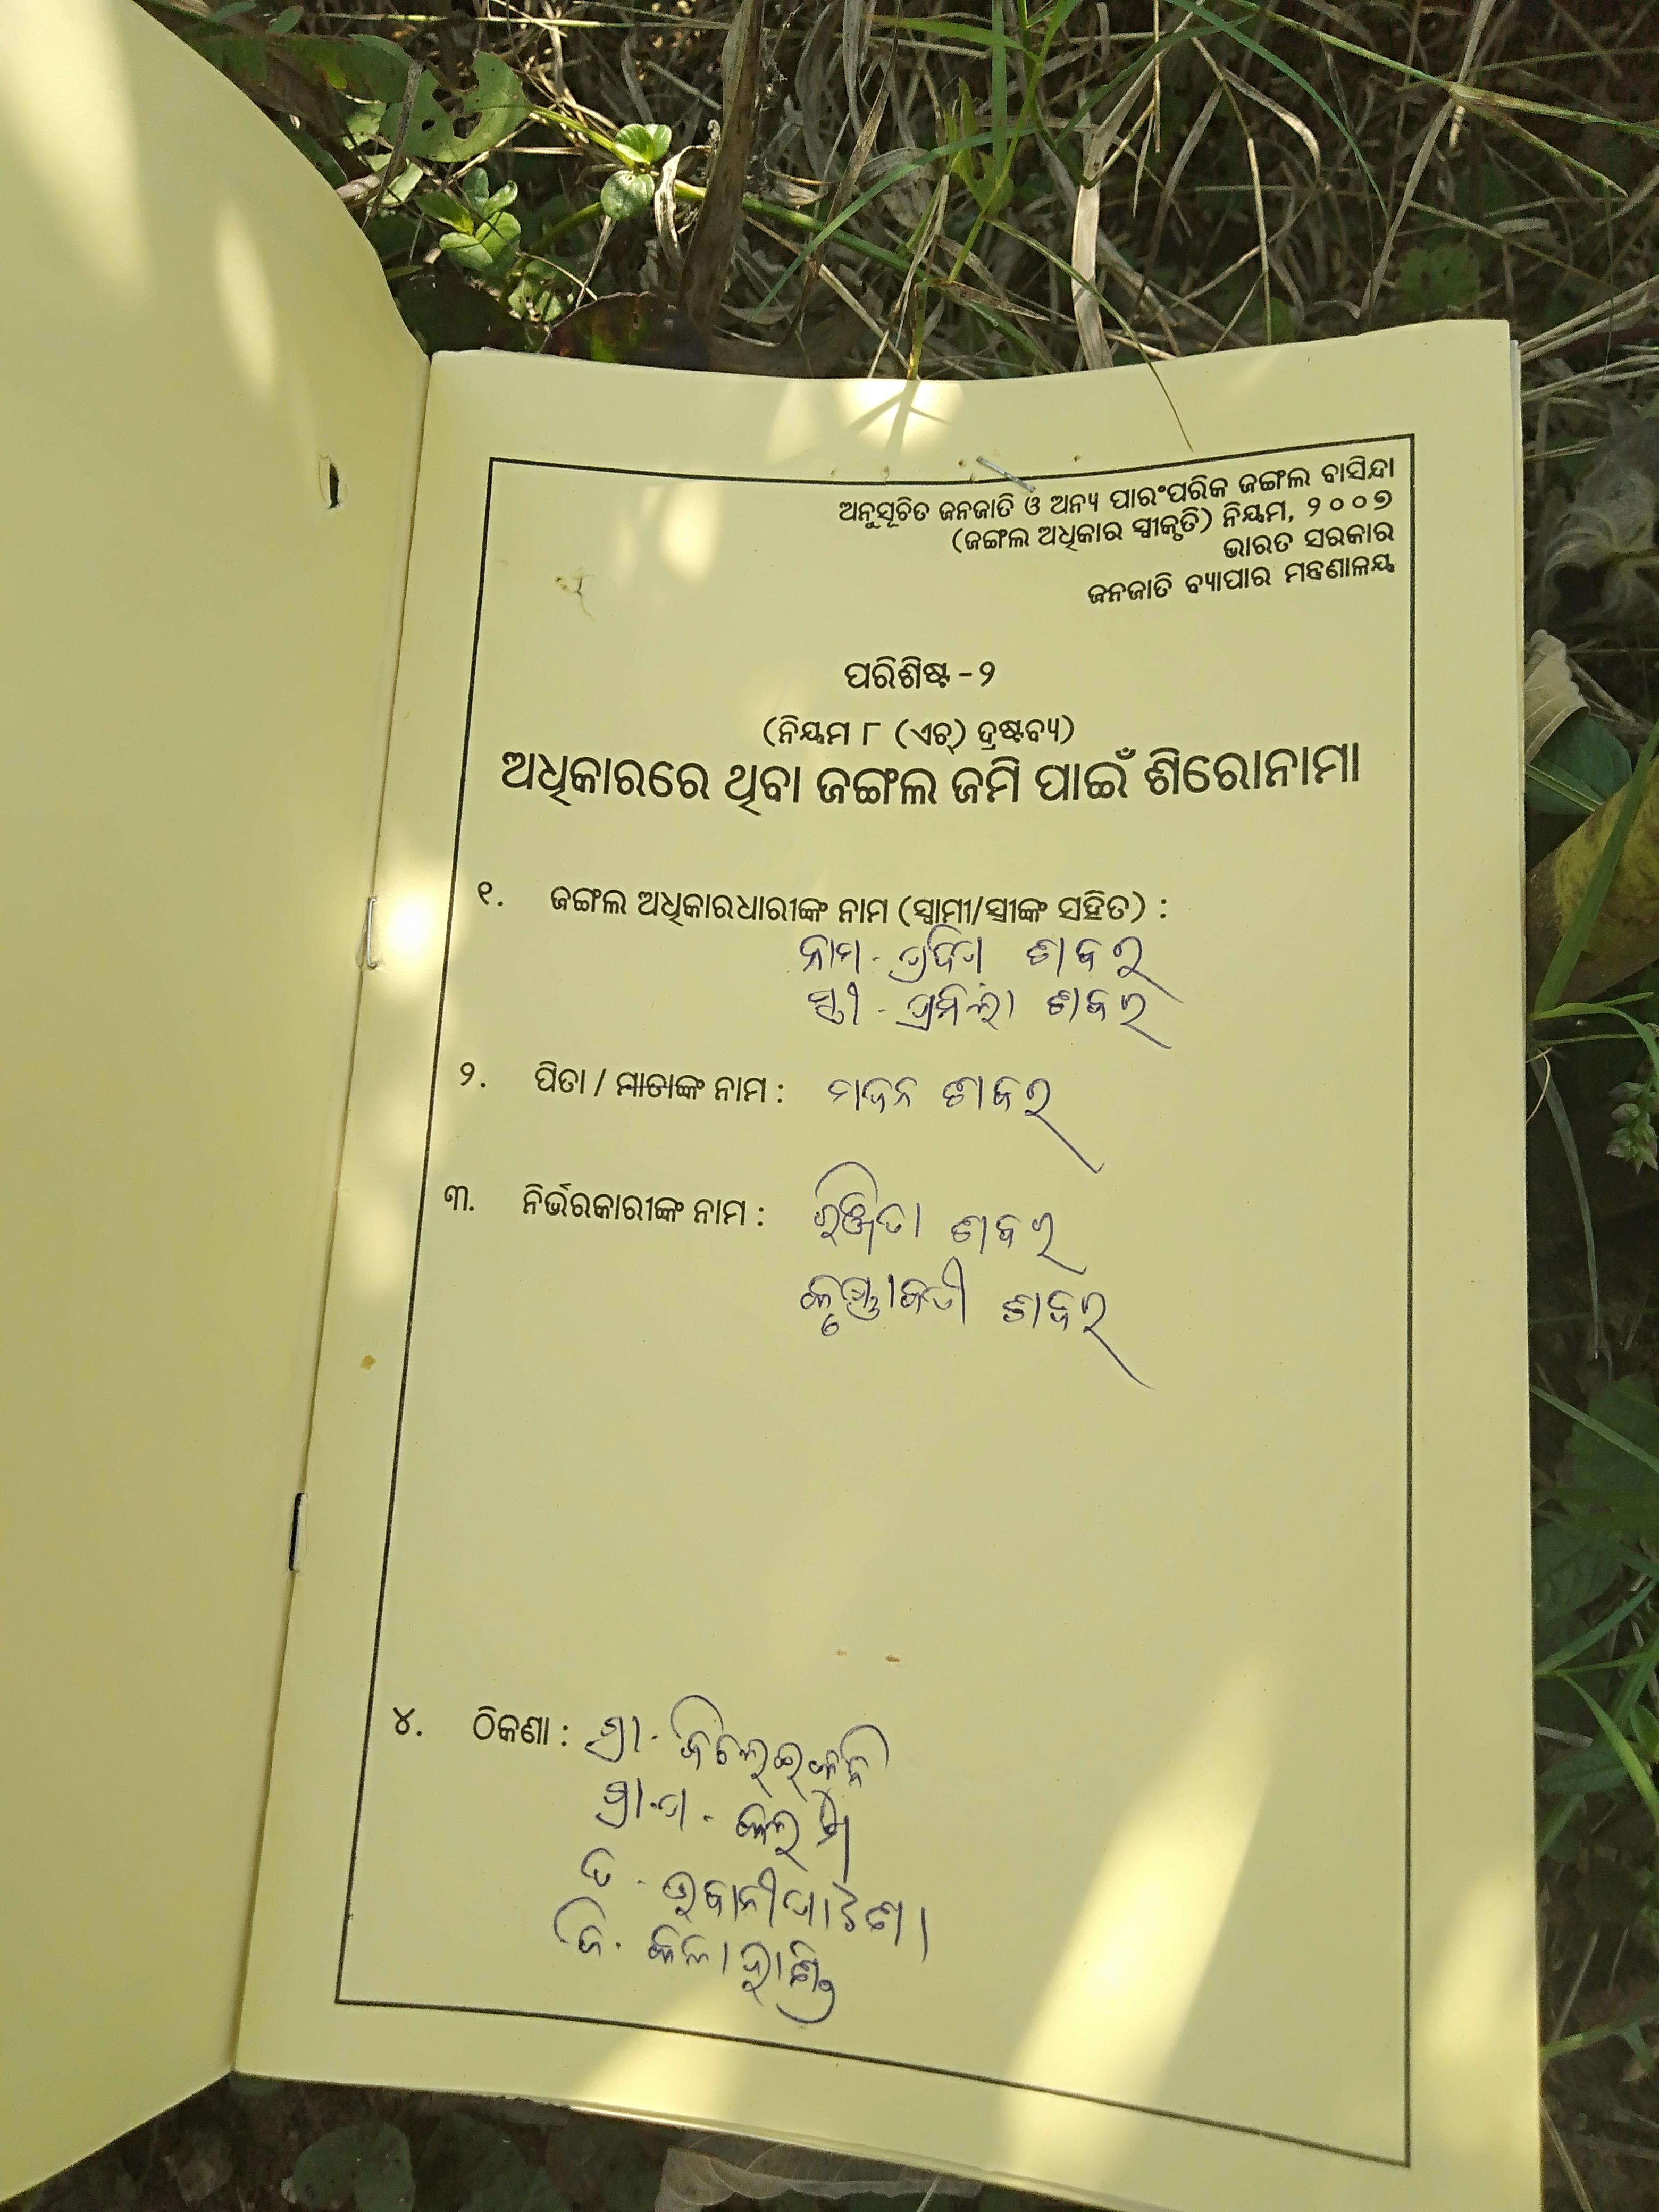 ଅନୁସୂଚିତ ଜନଜାତି ଓ ଅନ୍ୟ ପାରଂପରିକ ଜଙ୍ଗଲ ବାସିନ୍ଦା
(ଜଙ୍ଗଲ ଅଧିକାର ସ୍ୱୀକୃତି) ନିୟମ, ୨୦୦୭
ଭାରତ ସରକାର
ଜନଜାତି ବ୍ୟାପାର ମନ୍ତ୍ରଣାଳୟ
ପରିଶିଷ୍ଟ - ୨
(ନିୟମ ୮ (ଏଚ୍) ଦ୍ରଷ୍ଟବ୍ୟ)
ଅଧିକାରରେ ଥିବା ଜଙ୍ଗଲ ଜମି ପାଇଁ ଶିରୋନାମା
୧. ଜଙ୍ଗଲ ଅଧିକାରଧାରୀଙ୍କ ନାମ (ସ୍ୱାମୀ/ସ୍ତ୍ରୀଙ୍କ ସହିତ) :
ନାମ - ଶବର
ସ୍ତ୍ରୀ - ପ୍ରମିଲା ଶବର
୨. ପିତା / ମାତାଙ୍କ ନାମ : ମଦନ ଶବର
୩. ନିର୍ଭରକାରୀଙ୍କ ନାମ : ରଞ୍ଜିତା ଶବର
କୃଷ୍ଣାବତୀ ଶବର
୪. ଠିକଣା : ଗ୍ରା -
ଗ୍ରା.ପ -
ତ - ଭବାନୀପାଟଣା
ଜି. କଳାହାଣ୍ଡି